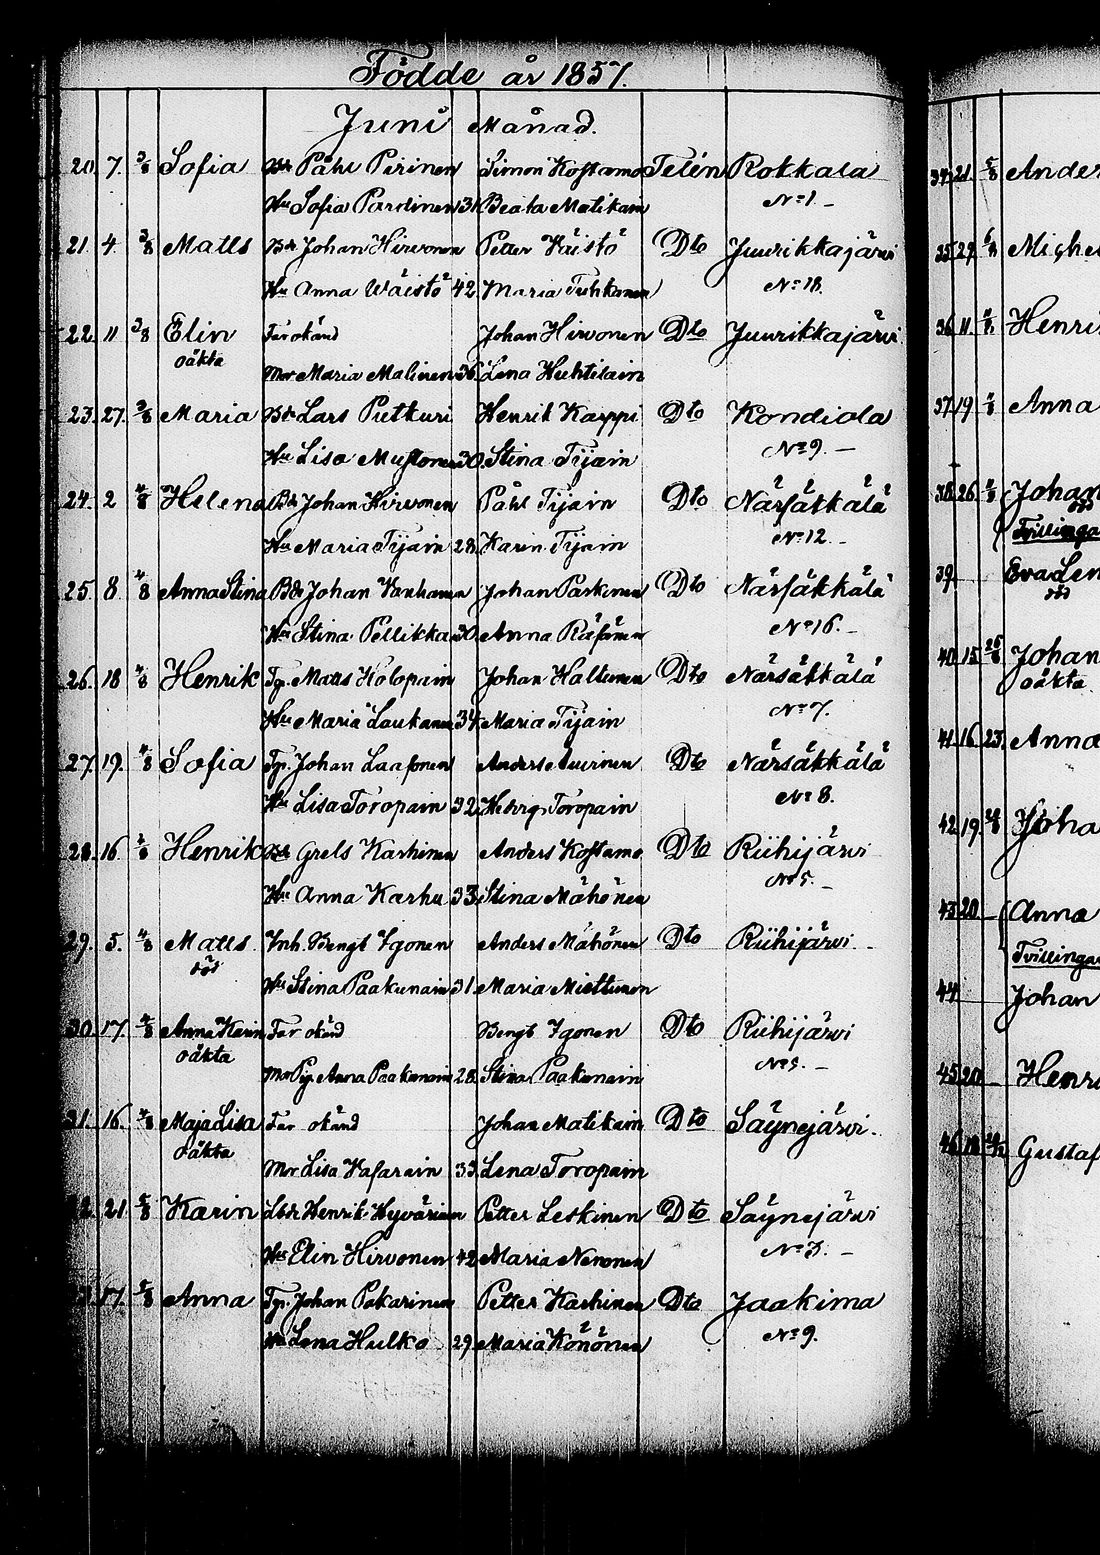 Födde år 1857.
Juni Månad.
20. 7. 3/8 Sofia Bd Påhl Pirinen Simon Kostamo Telén Rokkala
Hu Sofia Pardinen 31 Beata Matikain No 1.
21. 4. 3/8 Matts Bd Johan Hirvonen Petter Väistö Dto Juurikkajärvi
Hu Anna Wäistö 42. Maria Tuhkanen No 18.
22. 11 3/8 Elin Far okänd Johan Hirvonen Dto Juurikkajärvi
oäkta
Mor Maria Malinen 36. Lena Huhtilain
23. 27. 3/8 Maria Bd Lars Putkuri Henrik Karppi Dto Kondiola
Hu Lisa Mustonen 30. Stina Tijain No 9.
24. 2 4/8 Helena Bd Johan Hirvonen Påhl Tijain Dto Närsäkkälä
Hu Maria Tijain 28. Karin Tijain No 12.
25. 8 4/8 Anna Stina Bd Johan Vanhanen Johan Paskinen Dto Närsäkkälä
Hu Stina Pellikka 30. Anna Räsänen No 16.
26. 18 4/8 Henrik Tp. Matts Kolopain Johan Haltunen Dto Närsäkkälä
Hu Maria Laukanen 34. Maria Tijain No 7.
27. 19. 4/8 Sofia Tp. Johan Laasonen Anders Auvinen Dto Närsäkkälä
Hu Lisa Toropain 32. Hebrg. Toropain No 8.
28. 16 Henrik Bd Grels Karhinen Anders Kostamo Dto Riihijärvi
Hu Anna Karhu 33. Stina Mähönen No 5.
29. 5. 4/8 Matts Inh. Bengt Igonen Anders Mähönen Dto Riihijärvi
död
Hu Stina Paakunain 31 Maria Miettunen
30. 17. 4/8 Anna Karin Far okänd Bengt Igonen Dto Riihijärvi
oäkta
Mor Pig. Anna Paakunain 28. Stina Paakunain No 5.
31. 16. 4/8 Maja Lisa Far okänd Johan Matikain Dto Säynejärvi.
oäkta
Mor Lisa Vasarain 33. Lena Toropain
32. 21. 5/8 Karin Lbd Henrik Hyvärinen Petter Leskinen Dto Säynejärvi
Hu Elin Hirvonen 42 Maria Nenonen No 3.
17. 5/8 Anna Tp. Johan Pakarinen Petter Karhinen Dto Jaakima
Hu Lena Hulko 29. Maria Könönen No 9.
34. 21. 5/8 Ander
35. 29. Miche
36. 11. Henri
37. 19. Anna
38. 26. Johan
död
Tvillinga
39. Eva Len
död
40. 15. Johan
oäkta
41. 16. 23. Anna
42. 19. Joha
43. 20. Anna
Tvillingar
44. Johan
45. 20. Henr
46. 18. Gustaf